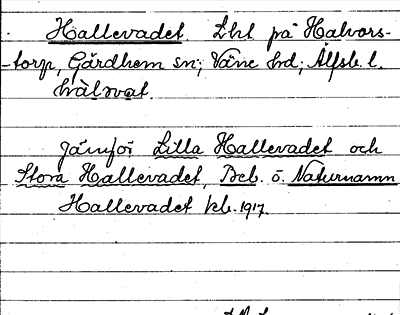 Hallevadet. Lht på Halvors-
-torp, Gärdhem sn; Väne hd; Älfsb. l.
hàlǝvat.
Jämför Lilla Hallevadet och
Stora Hallevadet, Beb. o. Naturnamn
Hallevadet kb. 1917.